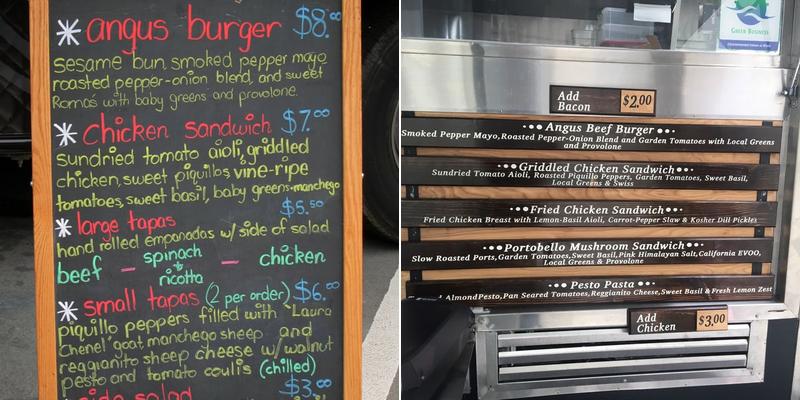 * angus burger $8.00
sesame bun, smoked pepper mayo
roasted pepper-onion blend, and sweet
Roma's with baby greens and provolone.
* chicken sandwich $7.00
sundried tomato aioli, griddled
chicken, sweet piquillos, vine-ripe
tomatoes, sweet basil, baby greens-manchego
* large tapas $5.50
hand rolled empanadas w/ side of salad
beef - spinach & ricotta - chicken
* small tapas (2 per order) $6.00
piquillo peppers filled with "Laura
Chenel" goat, manchego sheep and
reggianito sheep cheese w/ walnut
pesto and tomato coulis (chilled)
side salad $3.00
GREEN BUSINESS
Add
Bacon $2.00
Angus Beef Burger
Smoked Pepper Mayo, Roasted Pepper-Onion Blend and Garden Tomatoes with Local Greens
and Provolone
Griddled Chicken Sandwich
Sundried Tomato Aioli, Roasted Piquillo Peppers, Garden Tomatoes, Sweet Basil,
Local Greens & Swiss
Fried Chicken Sandwich
Fried Chicken Breast with Lemon-Basil Aioli, Carrot-Pepper Slaw & Kosher Dill Pickles
Portobello Mushroom Sandwich
Slow Roasted Ports, Garden Tomatoes, Sweet Basil, Pink Himalayan Salt, California EVOO,
Local Greens & Provolone
Pesto Pasta
Almond Pesto, Pan Seared Tomatoes, Reggianito Cheese, Sweet Basil & Fresh Lemon Zest
Add
Chicken $3.00